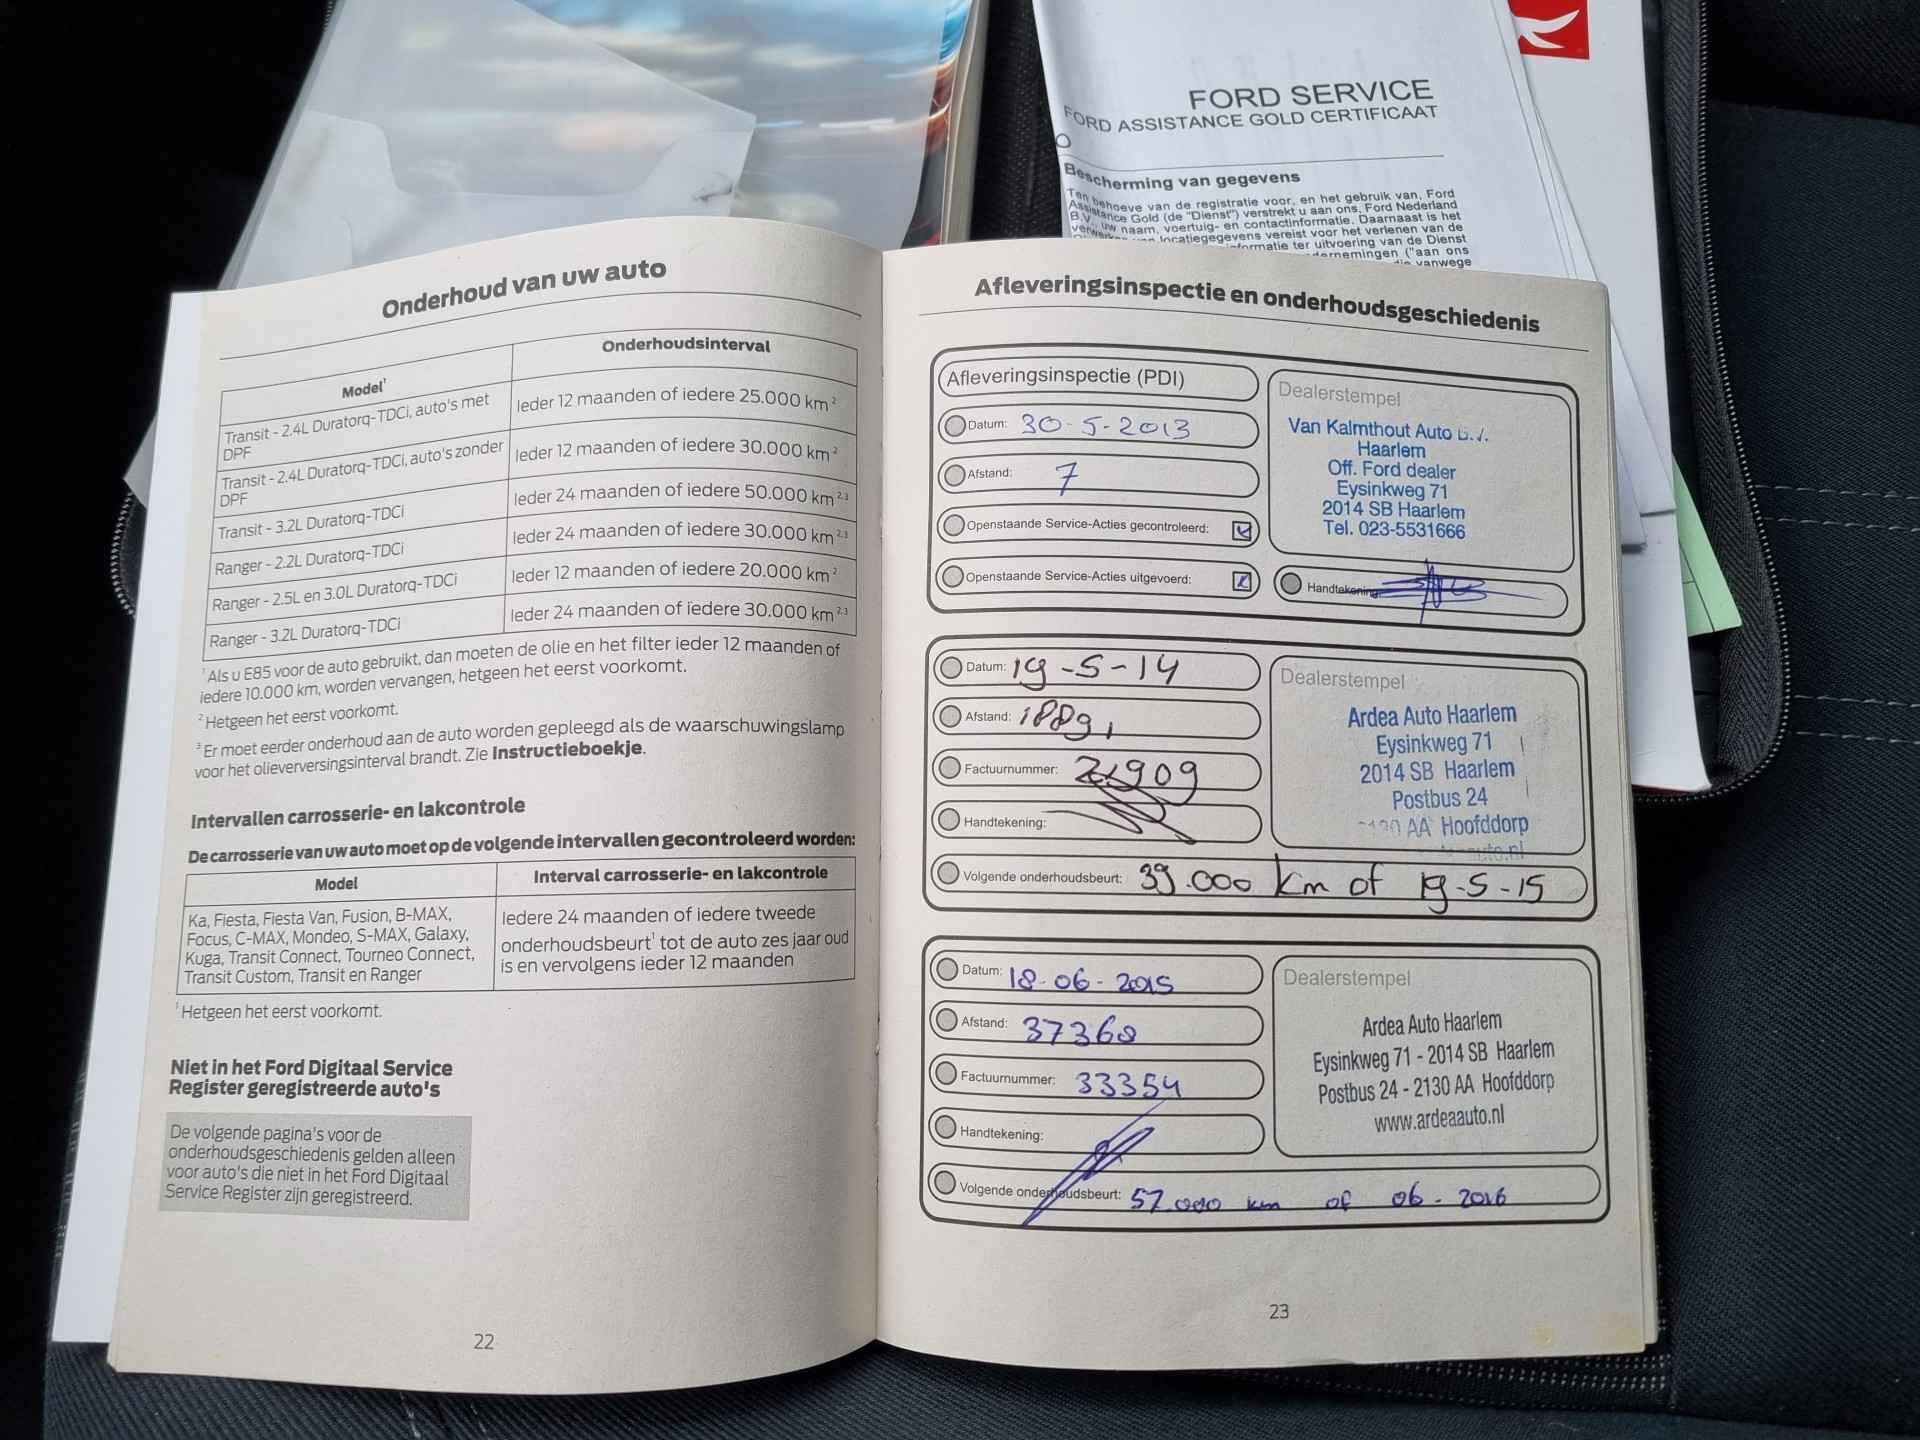 FORD SERVICE
FORD ASSISTANCE GOLD CERTIFICAAT
Bescherming van gegevens
Ten behoeve van de registratie voor, en het gebruik van, Ford
Assistance Gold (de "Dienst") verstrekt u aan ons, Ford Nederland
B.V., uw naam, voertuig- en contactinformatie. Daarnaast is het
van locatiegegevens vereist voor het verlenen van de
informatie ter uitvoering van de Dienst
("aan ons
vanwege
Onderhoud van uw auto
Model¹
Onderhoudsinterval
Transit - 2.4L Duratorq-TDCi, auto's met
DPF
Ieder 12 maanden of iedere 25.000 km ²
Transit - 2.4L Duratorq-TDCi, auto's zonder
DPF
Ieder 12 maanden of iedere 30.000 km ²
Transit - 3.2L Duratorq-TDCi
Ieder 24 maanden of iedere 50.000 km ²,³
Ranger - 2.2L Duratorq-TDCi
Ieder 24 maanden of iedere 30.000 km ²,³
Ranger - 2.5L en 3.0L Duratorq-TDCi
Ieder 12 maanden of iedere 20.000 km ²
Ranger - 3.2L Duratorq-TDCi
Ieder 24 maanden of iedere 30.000 km ²,³
¹ Als u E85 voor de auto gebruikt, dan moeten de olie en het filter ieder 12 maanden of
iedere 10.000 km, worden vervangen, hetgeen het eerst voorkomt.
² Hetgeen het eerst voorkomt.
³ Er moet eerder onderhoud aan de auto worden gepleegd als de waarschuwingslamp
voor het olieverversingsinterval brandt. Zie Instructieboekje.
Intervallen carrosserie- en lakcontrole
De carrosserie van uw auto moet op de volgende intervallen gecontroleerd worden:
Model
Interval carrosserie- en lakcontrole
Ka, Fiesta, Fiesta Van, Fusion, B-MAX,
Focus, C-MAX, Mondeo, S-MAX, Galaxy,
Kuga, Transit Connect, Tourneo Connect,
Transit Custom, Transit en Ranger
Iedere 24 maanden of iedere tweede
onderhoudsbeurt¹ tot de auto zes jaar oud
is en vervolgens ieder 12 maanden
¹ Hetgeen het eerst voorkomt.
Niet in het Ford Digitaal Service
Register geregistreerde auto's
De volgende pagina's voor de
onderhoudsgeschiedenis gelden alleen
voor auto's die niet in het Ford Digitaal
Service Register zijn geregistreerd.
22
Afleveringsinspectie en onderhoudsgeschiedenis
Afleveringsinspectie (PDI)
Datum: 30-5-2013
Afstand: 7
Openstaande Service-Acties gecontroleerd:
Openstaande Service-Acties uitgevoerd:
Dealerstempel
Van Kalmthout Auto B.V.
Haarlem
Off. Ford dealer
Eysinkweg 71
2014 SB Haarlem
Tel. 023-5531666
Handtekening:
Datum: 19-5-14
Afstand: 18891
Factuurnummer: 21909
Handtekening:
Volgende onderhoudsbeurt: 39.000 km of 19-5-15
Dealerstempel
Ardea Auto Haarlem
Eysinkweg 71
2014 SB Haarlem
Postbus 24
2130 AA Hoofddorp
Datum: 18-06-2015
Afstand: 37368
Factuurnummer: 33354
Handtekening:
Volgende onderhoudsbeurt: 57.000 km of 06-2016
Dealerstempel
Ardea Auto Haarlem
Eysinkweg 71 - 2014 SB Haarlem
Postbus 24 - 2130 AA Hoofddorp
www.ardeaauto.nl
23